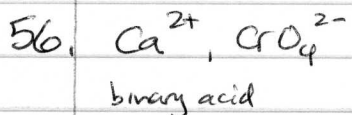 56. Ca²⁺, CrO₄²⁻
binary acid